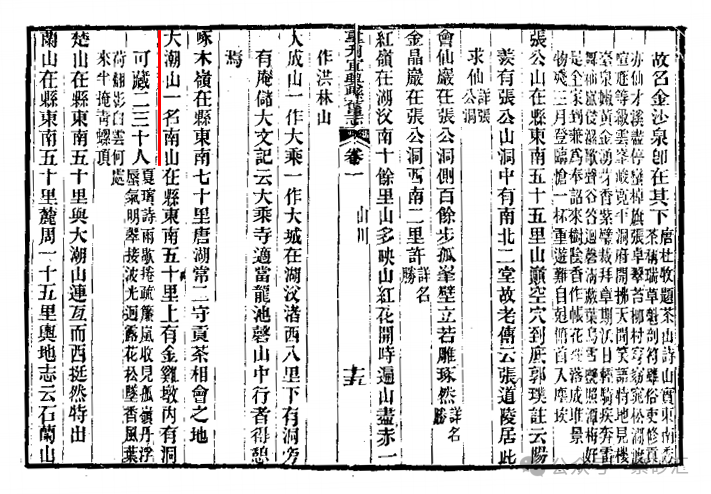 故名金沙泉卽在其下唐杜牧題茶山詩山實東南秀
茶稱瑞草魁剖符雖俗吏修貢
亦仙才溪盡停蠻棹旗張卓翠苔柳村穿窈窕松澗渡
喧豗等級雲峯峻寬平洞府開拂天聞笑語特地見樓
臺泉嫩黃金湧芽香紫璧裁拜章期沃日輕騎疾奔雷
舞袖嵐侵澗歌聲谷答迴磬藏葉鳥雪艷照潭梅好
是全家到兼爲奉詔來樹陰香作帳花徑落成堆景
物殘三月登臨愴一杯重遊難自尅俯首入塵埃
張公山在縣東南五十五里山巔空穴到底郭璞註云陽
羨有張公山洞中有南北二堂故老傳云張道陵居此
求仙詳張
公洞
會仙巖在張公洞側百餘步孤峯壁立若雕琢然詳名
勝
金晶巖在張公洞西南二里許詳名
勝
紅嶺在湖㳇南十餘里山多映山紅花開時遍山盡赤一
作洪林山
卷一
山川
十五
大成山一作大乘一作大城在湖㳇渚西八里下有洞旁
有庵儲大文記云大乘寺適當龍池磬山中行者得憩
焉
啄木嶺在縣東南七十里唐湖常二守貢茶相會之地
大潮山一名南山在縣東南五十里上有金雞墩內有洞
可藏二三十人夏璃詩雨歇捲疏簾嵐收見孤嶺丹浮
蜃氣明翠接波光迥露花松墜香風葉
荷翻影白雲何處
來半掩青螺頂
楚山在縣東南五十里與大潮山連亙而西挺然特出
蘭山在縣東南五十里麓周一十五里輿地志云石蘭山
公众号